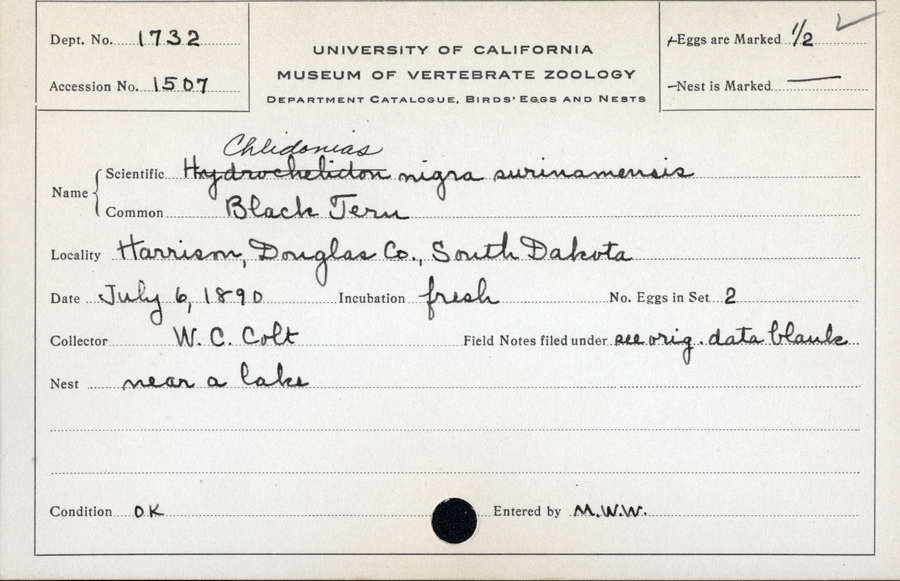 Dept. No. 1732
Accession No. 1507
UNIVERSITY OF CALIFORNIA
MUSEUM OF VERTEBRATE ZOOLOGY
DEPARTMENT CATALOGUE, BIRDS' EGGS AND NESTS
Eggs are Marked 1/2
Nest is Marked —
Chlidonias
Name Scientific Hydrochelidon nigra surinamensis
Common Black Tern
Locality Harrison, Douglas Co., South Dakota
Date July 6, 1890 Incubation fresh No. Eggs in Set 2
Collector W. C. Colt Field Notes filed under see orig. data blank
Nest near a lake
Condition OK Entered by M.W.W.